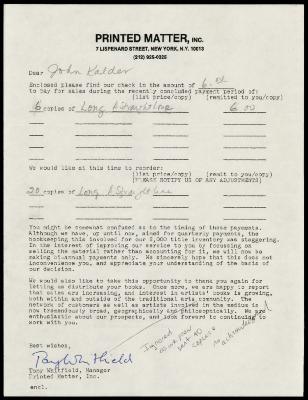 PRINTED MATTER, INC.
7 LISPENARD STREET, NEW YORK, N.Y. 10013
(212) 925-0325
Dear John Kalder
Enclosed please find our check in the amount of 6.00
to pay for sales during the recently concluded payment period of:
(list price/copy) (remitted to you/copy)
6 copies of Long A Straight Line 6.00
We would like at this time to reorder:
(list price/copy) (remitted to you/copy)
(PLEASE NOTIFY US OF ANY ADJUSTMENTS)
20 copies of Long A Straight Line
You might be somewhat confused as to the timing of these payments.
Although we have, up until now, aimed for quarterly payments, the
bookkeeping this involved for our 2,000 title inventory was staggering.
In the interest of improving our service to you by focussing on
selling the material rather than accounting for it, we will now be
making bi-annual payments only. We sincerely hope that this does not
inconvenience you, and appreciate your understanding of the basis
of our decision.
We would also like to take this opportunity to thank you again for
letting us distribute your books. Once more, we are happy to report
that sales are increasing, and interest in artists' books is growing,
both within and outside of the traditional arts community. The
network of customers as well as artists involved in the medium is
now tremendously broad, geographically and philosophically. We are
enthusiastic about our prospects, and look forward to continuing to
work with you.
Best wishes,
Tony Whitfield
Tony Whitfield, Manager
Printed Matter, Inc.
encl.
Ignored
as we now
sent 40
copies